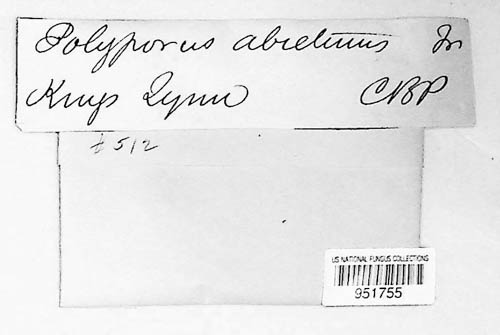 Polyporus abietinus Fr
Kings Lynn CBP
# 512
US NATIONAL FUNGUS COLLECTIONS
951755